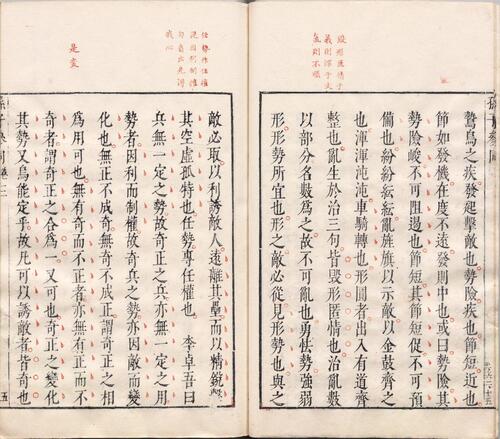 毀形匿情于
氣則不順
鷙鳥之疾發起擊敵也勢險疾也節短近也
節如發機在度不遠發則中也或曰勢險其
勢險峻不可阻遏也節短其節短促不可預
備也紛紛紜紜亂旌旗以示敵以金鼓齊之
也渾渾沌沌車騎轉也形圓者出入有道齊
整也亂生於治三句皆毀形匿情也治亂數
以部分名數爲之故不可亂也勇怯勢強弱
形形勢所宜也形之敵必從見形勢也與之
任勢作任權
從因利制權
句看出先得
我心
是變
敵必取以利誘敵人遠離其壘而以精銳擊
其空虛孤特也任勢專任權也 李卓吾曰
兵無一定之勢故奇正之兵亦無一定之
勢者因利而制權故奇兵之勢亦因敵而變
化也無正不成奇無奇不成正謂奇正之相
爲用可也無有奇而不正者亦無有正而不
奇者謂奇正之合爲一又可也奇正之變化
其勢又烏能定乎故凡可以誘敵者皆奇也
五